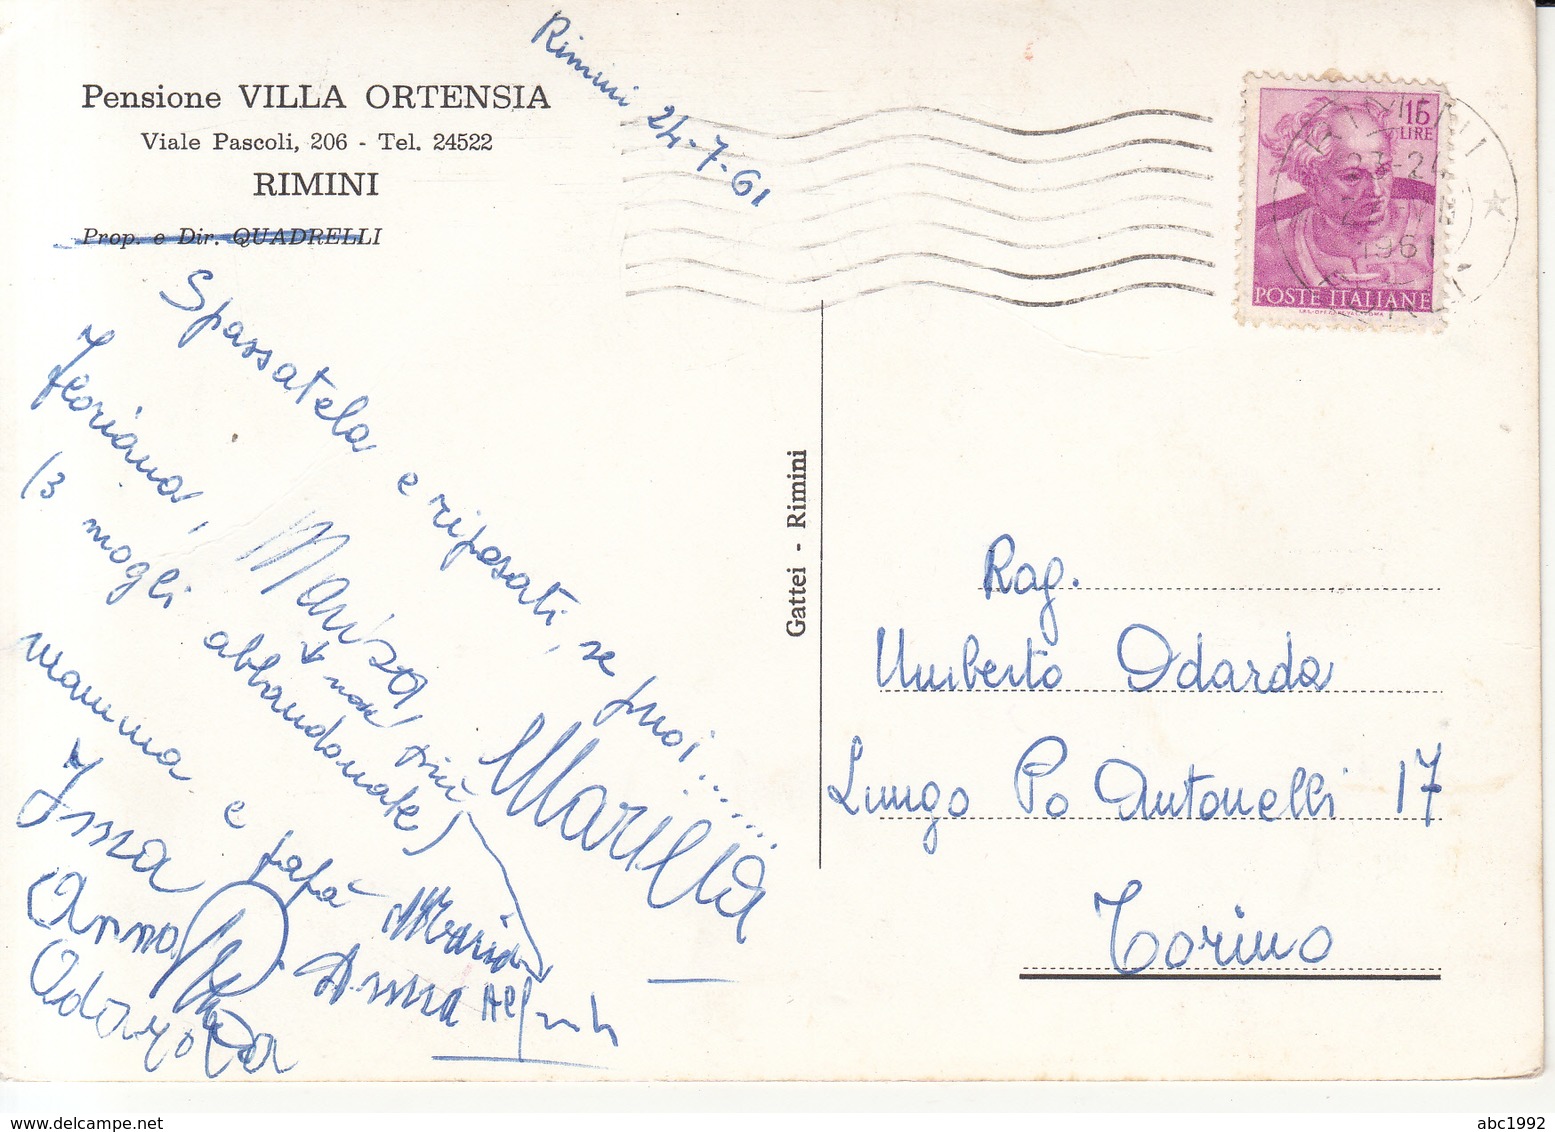 Pensione VILLA ORTENSIA
Viale Pascoli, 206 - Tel. 24522
RIMINI
Prop. e Dir. QUADRELLI
Rimini 24-7-61
15
LIRE
POSTE ITALIANE
RIMINI
23-24
1961
Spassatela e riposati, se puoi......
Floriana, Marisa Marilla
non più
(3 mogli abbandonate)
mamma e papà Maria
Irma
Anna Anna
Odarda
Gattei - Rimini
Rag.
Umberto Odarda
Lungo Po Antonelli 17
Torino
abc1992